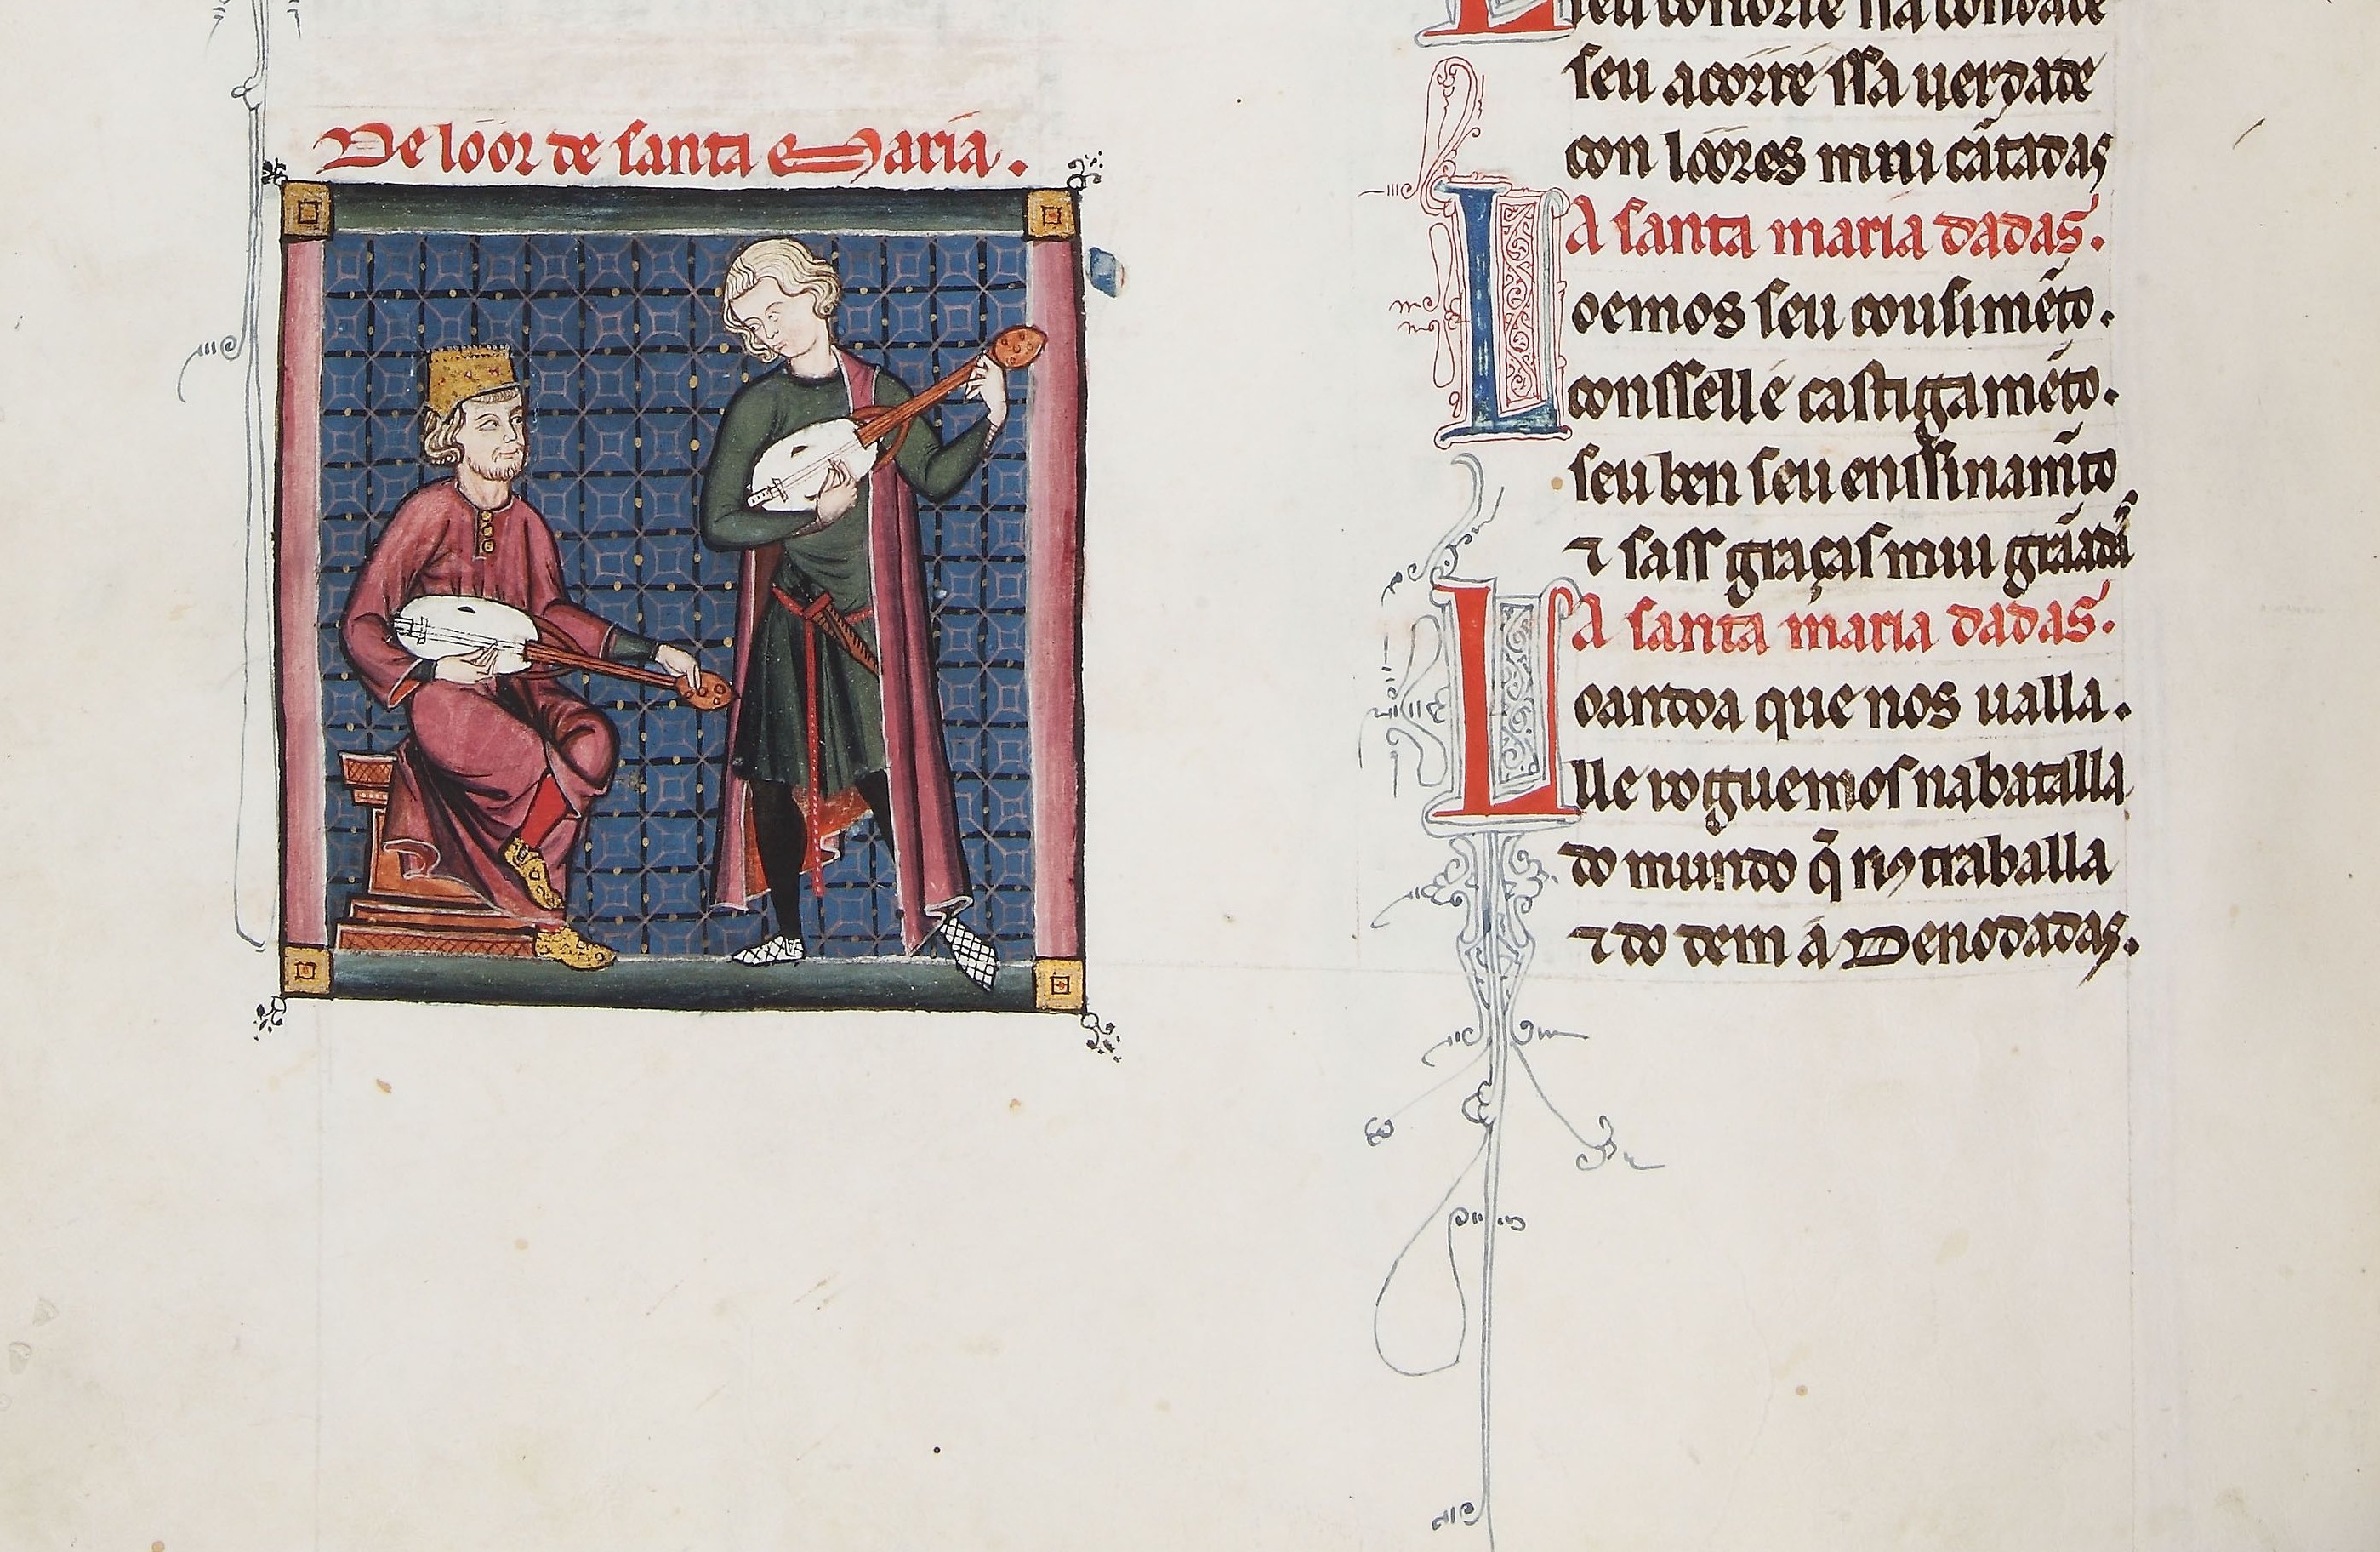 De lóor de santa Maria.
seu conorte ssa bondade
seu acorre ssa uerdade
con loores mui cãtadas
A santa maria dadas.
Loemos seu cousimẽto.
consselle castigamẽto.
seu ben seu enssinamẽto
⁊ sass graças mui grãadas
A santa maria dadas.
Loandoa que nos ualla.
lle roguemos na batalla
do mundo q̃ nos traballa
⁊ do dem á denodadas.